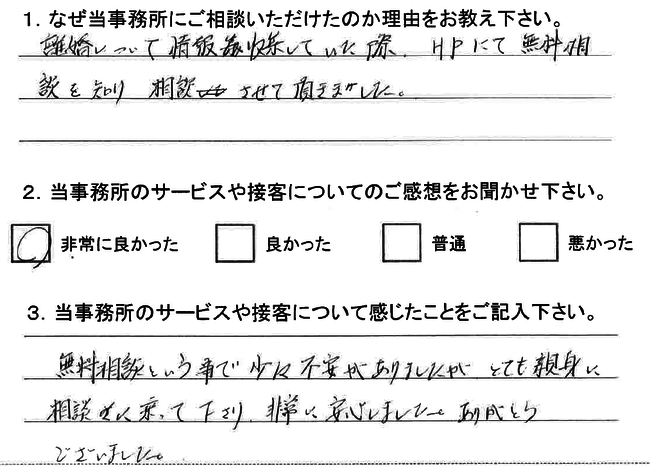 1. なぜ当事務所にご相談いただけたのか理由をお教え下さい。
離婚について情報収集していた際、HPにて無料相
談を知り 相談させて頂きました。
2. 当事務所のサービスや接客についてのご感想をお聞かせ下さい。
非常に良かった 良かった 普通 悪かった
3. 当事務所のサービスや接客について感じたことをご記入下さい。
無料相談という事で少々不安がありましたが とても親身に
相談に乗って下さり、非常に安心しました。ありがとう
ございました。